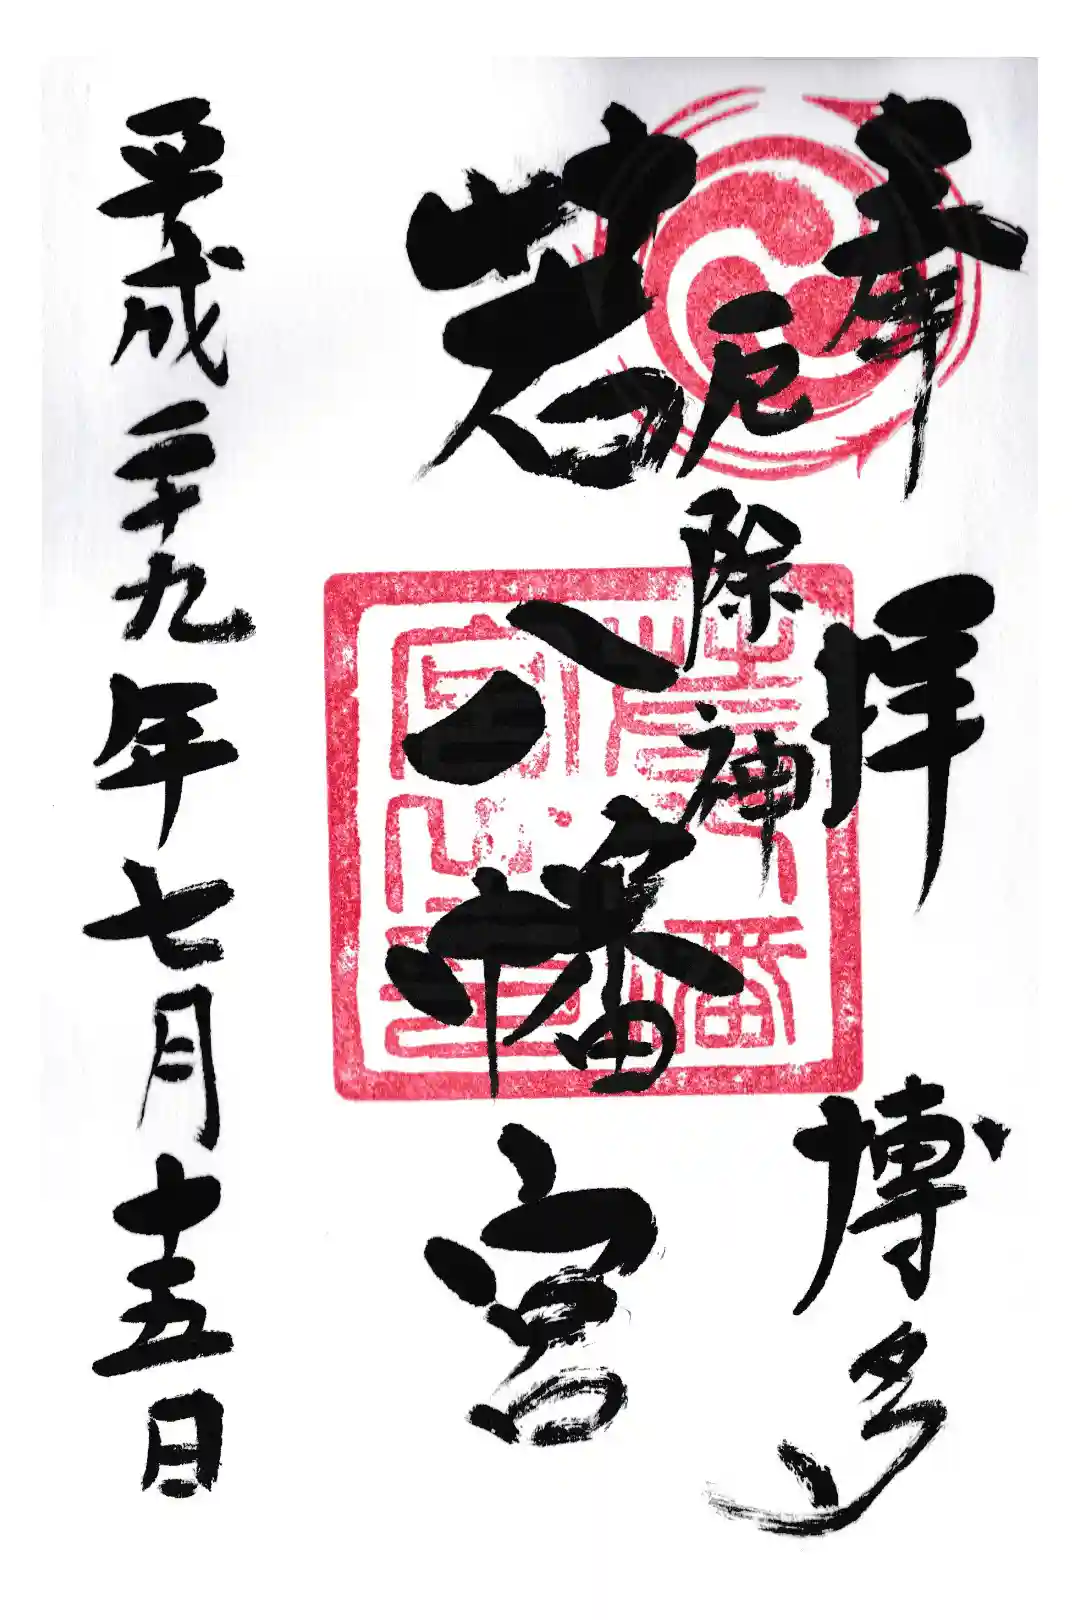 奉拝 博多
厄除神
若八幡宮
平成二十九年七月十五日